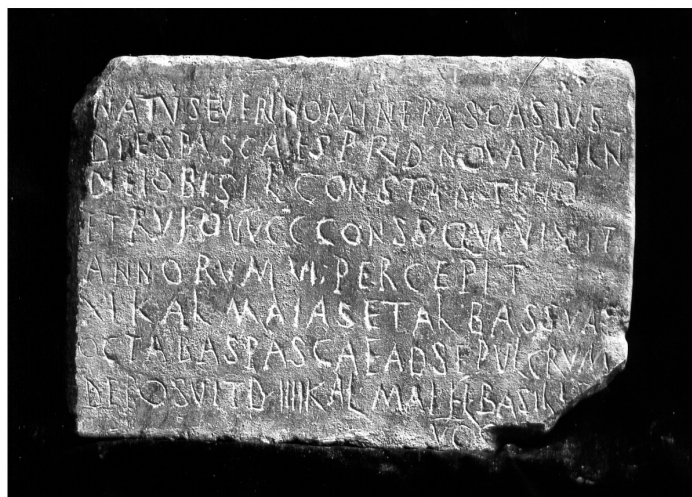 NATV SEVERI NOMINE PASCASIVS
DIES PASCALES PRID NOV APRILN
DIE IOBIS FL CONSTANTINO
ET RVFO VVCC CONSS QVI VIXIT
ANNORVM VI PERCEPIT
XI KAL MAIAS ET ALBAS SVAS
OCTABAS PASCAE AD SEPVLCRVM
DEPOSVIT D IIII KAL MAI FL BASILIO
VC